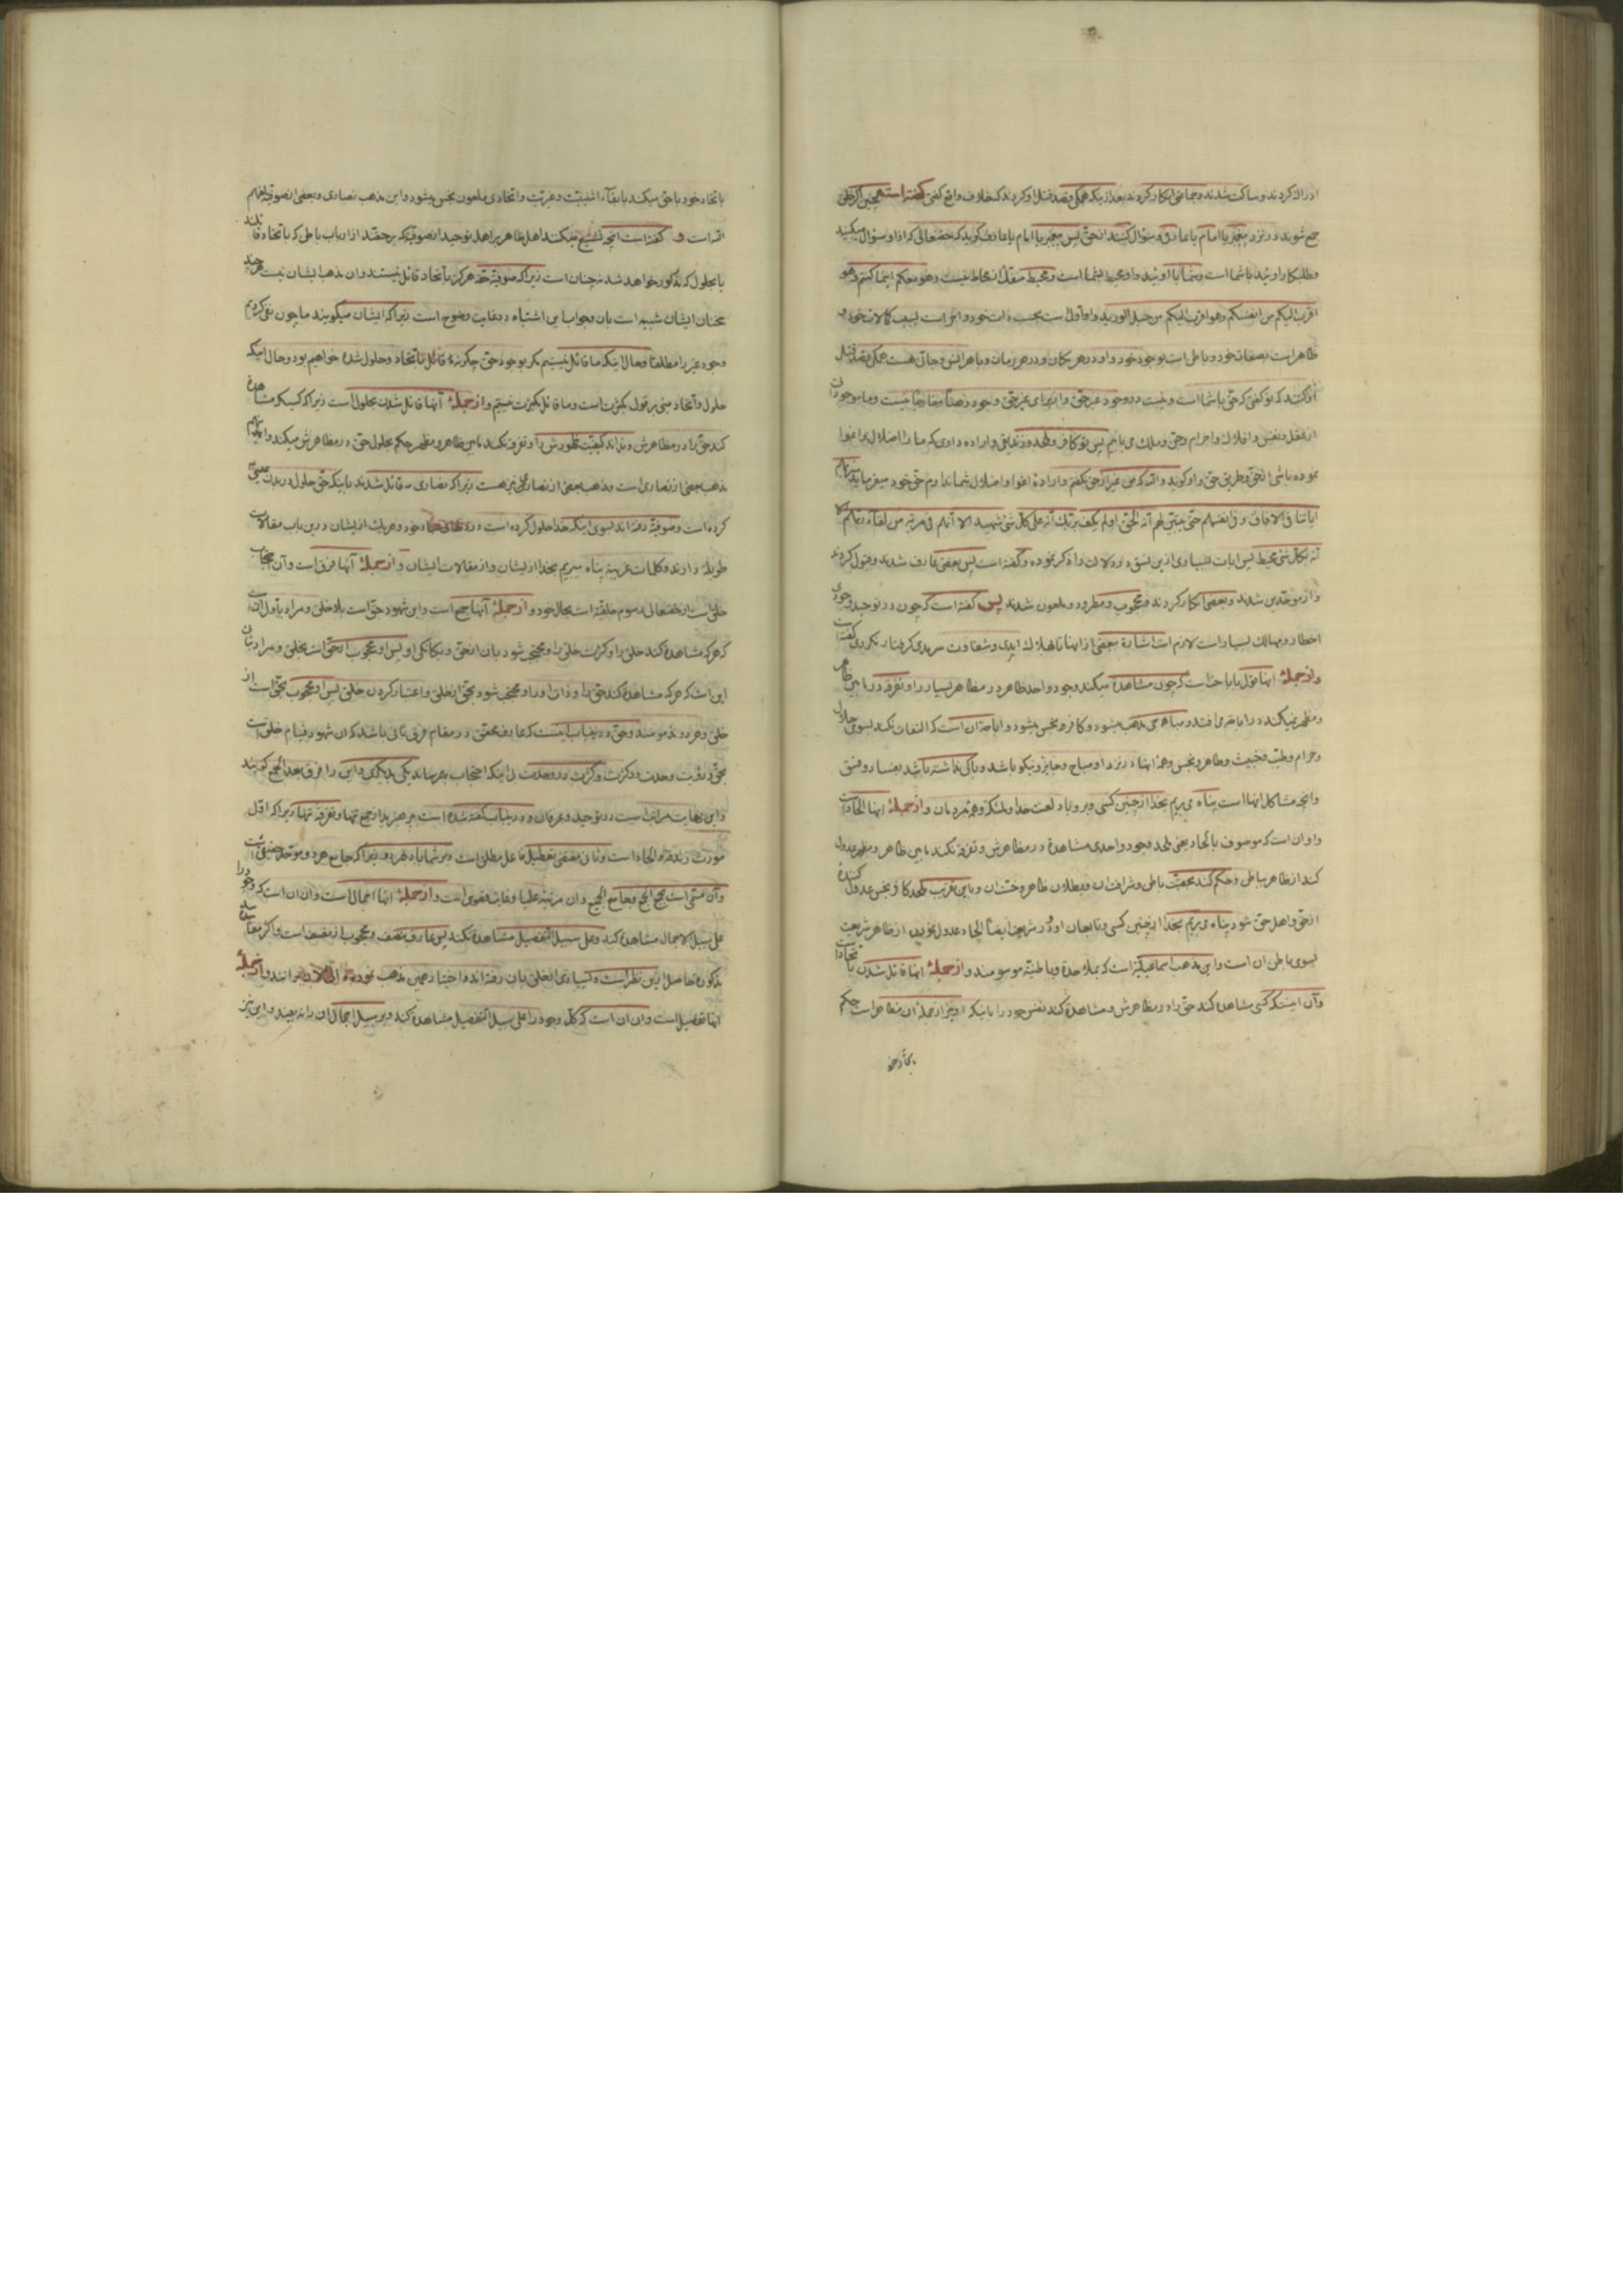 ادراك كردند و ساكت شدند و جماعتی انكار كردند بعد از ینكه همكی قصد قتل او كردند كه خلاف واقع كفتی كفته است همچنین اكر خلق
جمع شوند در نزد پیغمبر یا امام یا عارف و سؤال كنند از حق پس پیغمبر یا امام یا عارف كوید كه حقتعالی كه از او سؤال میكنید
و طلبكار اوئید با شما است و شما با اوئید و او محیط بشما است و محیط منفك از محاط نیست وهو معكم اینما كنتم وهو
اقرب الیكم من انفسكم وهو اقرب الیكم من حبل الورید و او اول است بحسب ذات خود و اخر است بسبب كمالات خود و
ظاهر است بصفات خود و باطن است بوجود خود و او در هر مكان و در هر زمان و با هر انس و جانی هست همكی قصد قتل
او كنند كه تو كفتی كه حق با شما است و نیست در وجود غیر حق و انچه ما غیر حق وجود نیست و ما موجودات
از عقل و نفس و افلاك و اجرام و جن و ملك می یابیم پس تو كافر و ملحد و زندیقی و اراده داری كه ما را اضلال و اغوا
نموده باشی از حق و طریق حق و او كوید والله كه من غیر از حق نكفتم و اراده اغوا و اضلال شما ندارم حق خود میفرماید سنریهم
ایاتنا فی الافاق و فی انفسهم حتی یتبین لهم انه الحق اولم یكف بربك انه علی كل شئ شهید الا انهم فی مریة من لقآء ربهم الا
انه بكل شئ محیط پس ایات بسیاری ازین نسق و دلالات ذكر نموده و كفته است پس بعضی عارف شدند و قبول كردند
و از موحدین شدند و بعضی انكار كردند و محجوب و مطرود و ملعون شدند پس كفته است كه چون در توحید وجودی
اخطار و مهالك بسیار است لازم است اشارة ببعضی از انها تا بهلاك ابدی و شقاوت سرمدی كرفتار نكردی كفته است
و از جملهٔ انها قول باباحت است كه چون مشاهدة میكند وجود واحد ظاهر در مظاهر بسیار را و تفرقه در ما بین ظاهر
و مظهر نمیكند در اباحه می افتد و مباحی مذهب میشود و كافر و نجس میشود و اباحه ان است كه التفات نكند بسوی حلال
و حرام و طیب و خبیث و طاهر و نجس و همهٔ انها در نزد او مباح و جایز و نیكو باشد و باكی نداشته باشد بفساد و فسق
و انچه مشاكل انها است پناه می بریم بخدا از چنین كسی و بر او باد لعنت خدا و ملئكه و همهٔ مردمان و از جملهٔ انها الحاد است
و او ان است كه موصوف بالحاد یعنی ملحد وجود واحدی مشاهدة در مظاهرش و تفرقه نكند مابین ظاهر و مظهر عدول
كند از ظاهر بباطن و حكم كند بحقیت باطن و شرافت ان و بطلان ظاهر و خست ان و باین تقریب ملحد كافر نجس عدول كنندهٔ
از حق و اهل حق شود پناه می بریم بخدا از چنین كسی و تابعان او و در شریعت ایضا الحاد عدول نمودن از ظاهر شریعت
بسوی باطن ان است و این مذهب اسماعیلیه است كه بملاحدة و باطنیة موسومند و از جملهٔ انها قائل شدن باتحاد است
و ان اینست كه كسی مشاهدة كند حق را در مظاهرش و مشاهدة كند نفس خود را باینكه او نیز از جملهٔ ان مظاهر است حكم
باتحاد خود
باتحاد خود با حق میكند با بقآء اثنینیت و غیریت و اتحادی ملعون نجس میشود و این مذهب نصاری و بعضی از صوفیه لعنهم
الله است و كفته است انچه تشنیع میكنند اهل ظاهر بر اهل توحید از صوفیهٔ كه بر حقند از ارباب باطن كه باتحاد قائلند
یا بحلول كه مذكور خواهد شد نه چنان است زیرا كه صوفیهٔ حقه هركز باتحاد قائل نیستند و ان مذهب ایشان نیست هر چند
سخنان ایشان شبیه است بان و جواب این اشتباه در غایت وضوح است زیرا كه ایشان میكویند ما چون نفی كردیم
وجود غیر را مطلقا و حال اینكه ما قائل نیستیم مكر بوجود حق چكونهٔ قائل باتحاد و حلول شدة خواهیم بود و حال اینكه
حلول و اتحاد مبنی بر قول بكثرت است و ما قائل بكثرت نیستیم و از جملهٔ انها قائل شدن بحلول است زیرا كه كسیكه مشاهدهٔ
كند حق را در مظاهرش و نداند كیفیت ظهورش را و تفرقه نكند مابین ظاهر و مظهر حكم بحلول حق در مظاهرش میكند و این نیز
مذهب بعضی از نصاری است و مذهب بعضی از نصاری نیز هست زیرا كه نصاری قائل شدند باینكه حق حلول در بدن عیسی
كرده است و صوفیهٔ رفته اند بسوی اینكه خدا حلول كرده است در خود و هر یك از ایشان درین باب مقالات
طویلهٔ دارند و كلمات غریبه پناه میبریم بخدا از ایشان و از مقالات ایشان و از جملهٔ انها فرق است و ان احتجاب
خلق است از حقتعالی و رسوم خلقیه است بحال خود و از جملهٔ انها جمع است و این شهود حق است بلا خلق و مراد باول ان است
كه هر كه مشاهدة كند خلق را و كثرت خلق را و محتجب شود بان از حق و یكانكی او پس او محجوب از حق است بخلق و مراد بثانی
این است كه هر كه مشاهدة كند حق را و ذات او را و محتجب شود بحق از خلق و اعتبار كردن خلق پس او محجوب بحق است از
خلق و هر دو مذمومند و حق درین باب اینست كه عارف محقق در مقام فرق ثانی باشد كه ان شهود قیام خلق است
بحق و رؤیت وحدت در كثرت و كثرت در وحدت بی اینكه احتجاب بهم رساند یكی بدیكری و این را فرق بعد الجمع كویند
و این نهایت مراتب است در توحید و عرفان و درین باب كفته شدة است بپرهیزید از جمع تنها و تفرقه تنها زیرا كه اول
مورث زندقه و الحاد است و ثانی مقتضی تعطیل فاعل مطلق است و بر شما باد بهر دو زیرا كه جامع هر دو موحد حقیقی است
و ان مسمی است بجمع الجمع و جامع الجمیع و ان مرتبهٔ علیا و غایت قصوی است و از جملهٔ انها اجمال است و ان ان است كه وجود را
علی سبیل الاجمال مشاهدة كند و علی سبیل التفصیل مشاهدة نكند پس عارف نصف و محجوب از نصف است و اكثر معارف
مذكوره حاصل ازین نظر است و بسیاری از خلق بان رفته اند و اختیار همین مذهب نموده اند و از جملهٔ
انها تفصیل است و ان ان است كه كل وجود را علی سبیل التفصیل مشاهدة كند و بر سبیل اجمال ان را نه بیند و این نیز